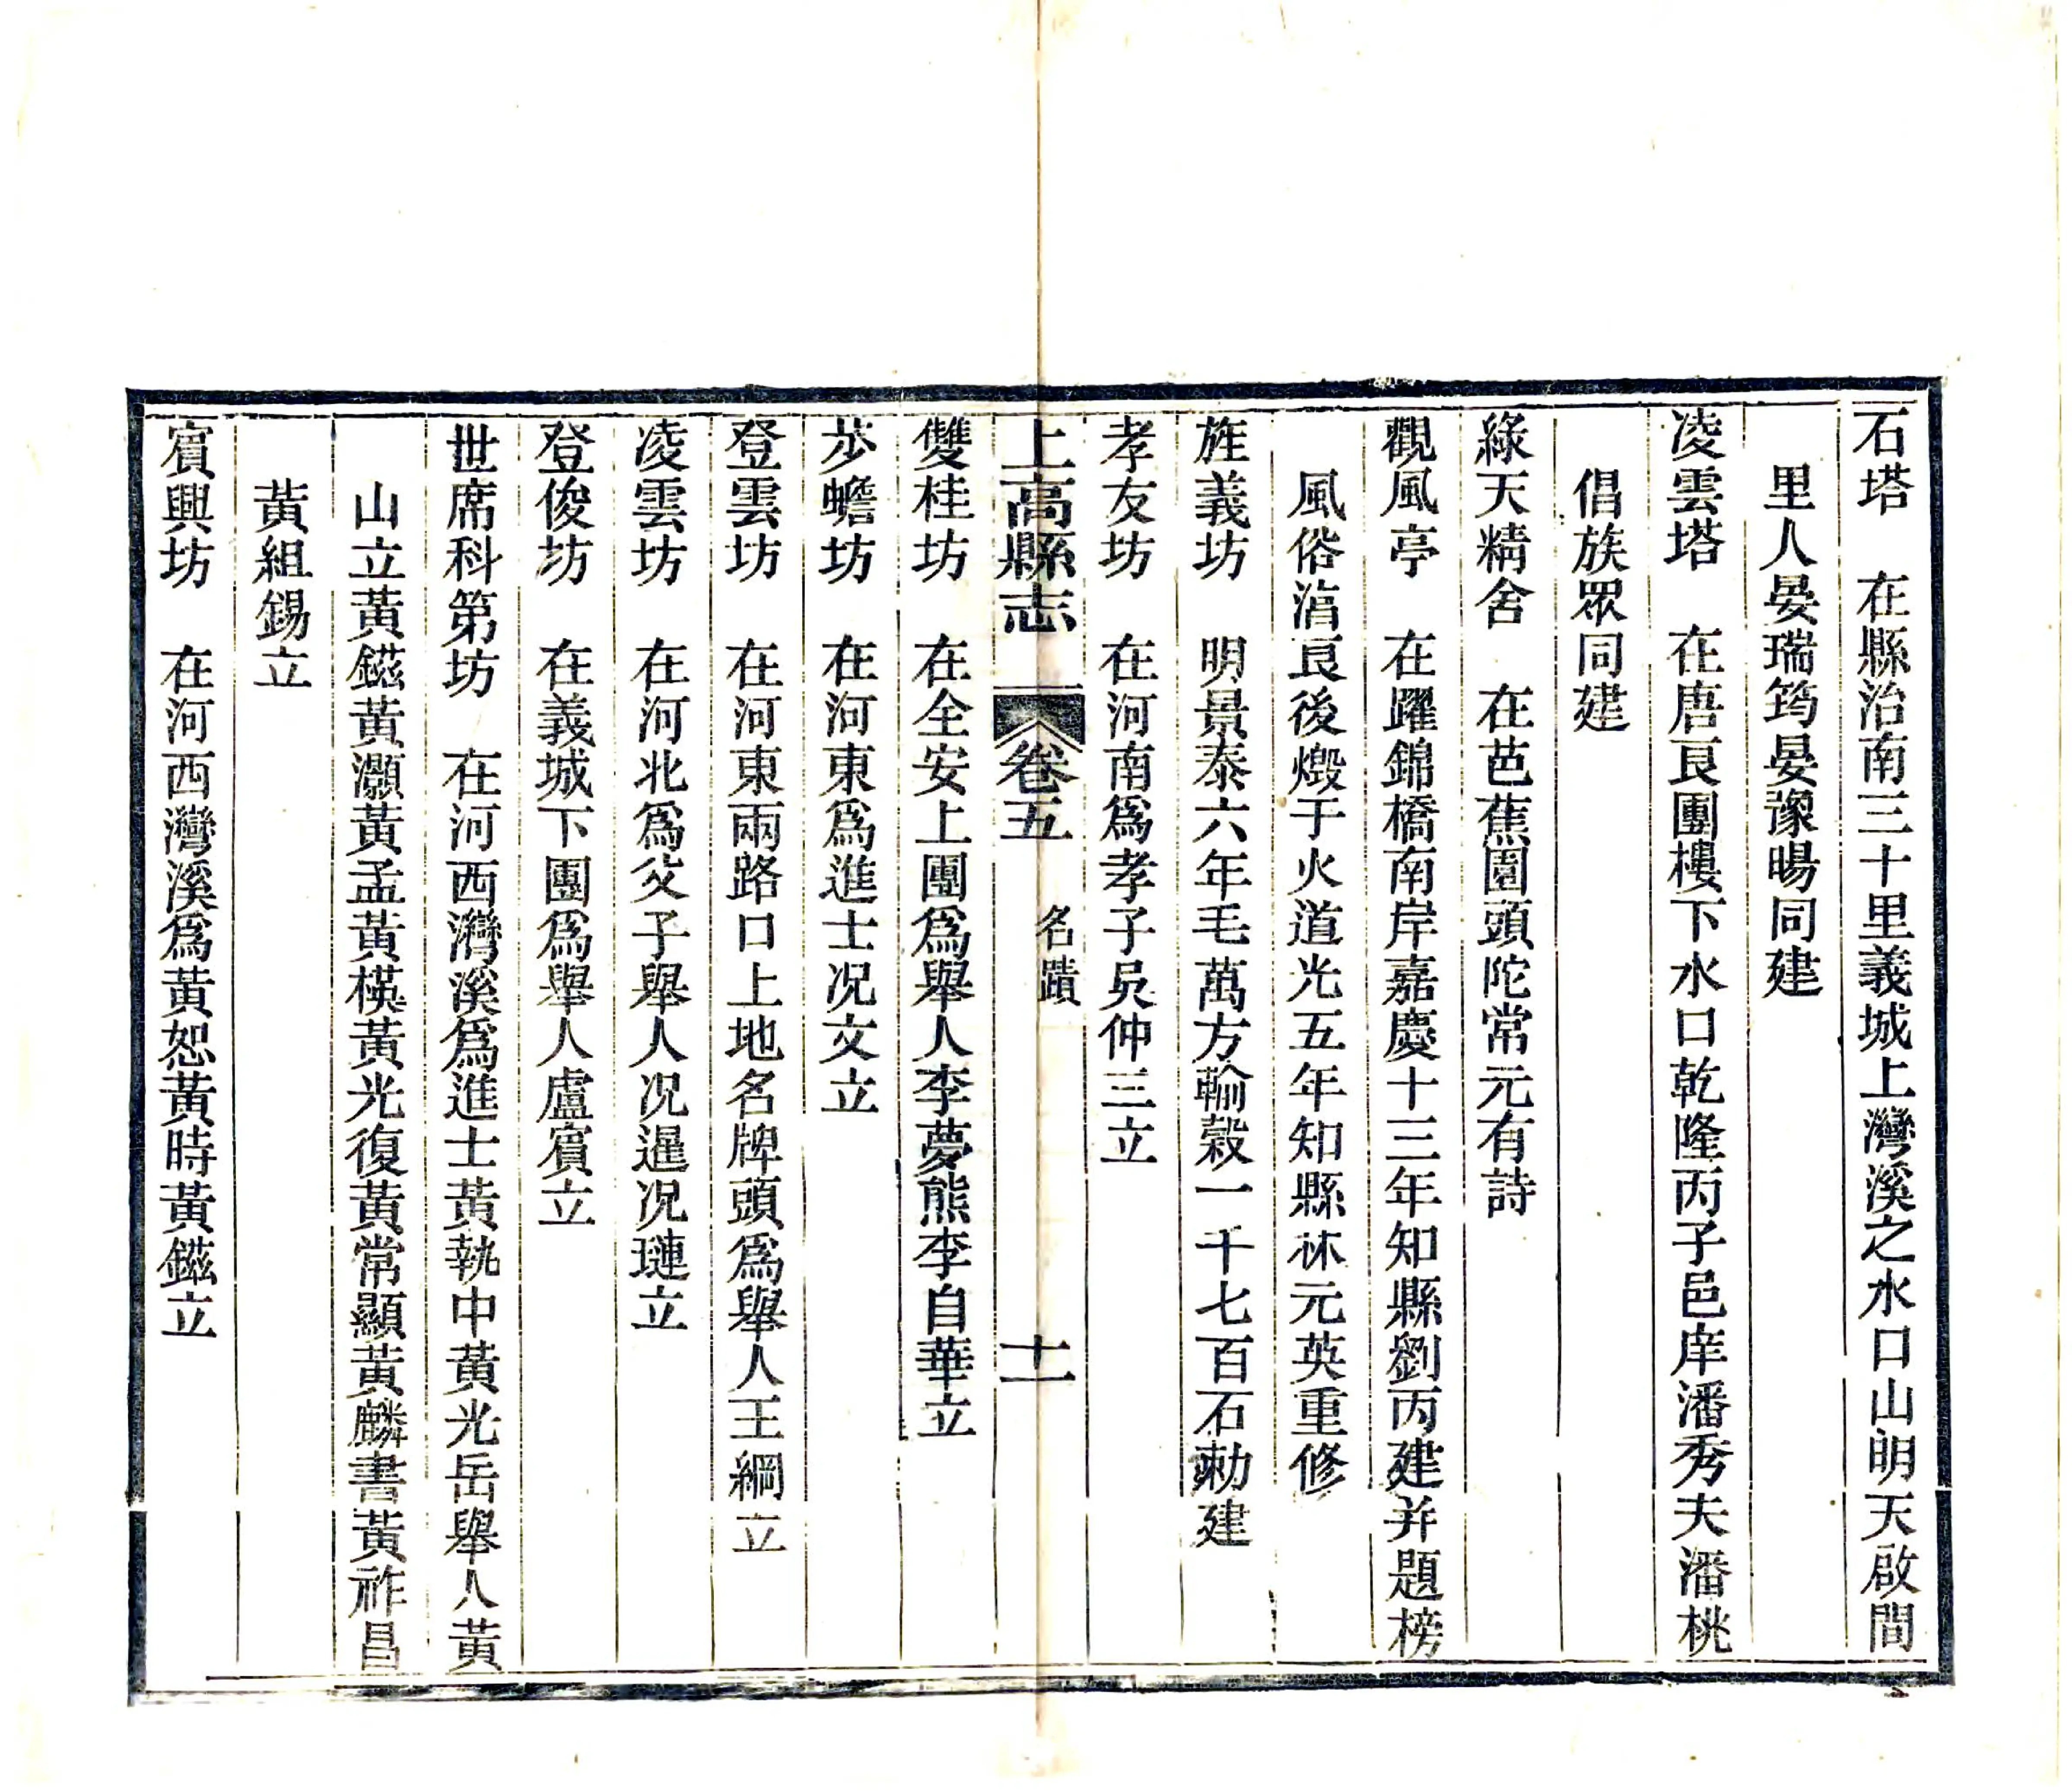 石塔　在縣治南三十里義城上灣溪之水口山明天啟間
里人晏瑞筠晏豫暘同建
凌雲塔　在唐良團樓下水口乾隆丙子邑庠潘秀夫潘桃
倡族眾同建
綠天精舍　在芭蕉園頭陀常元有詩
觀風亭　在躍錦橋南岸嘉慶十三年知縣劉丙建并題榜
風俗湻良後燬于火道光五年知縣林元英重修
旌義坊　明景泰六年毛萬方輸榖一千七百石勅建
孝友坊　在河南爲孝子吳仲三立
上高縣志　卷五　名蹟　十一
雙桂坊　在全安上團爲舉人李夢熊李自華立
步蟾坊　在河東爲進士况文立
登雲坊　在河東兩路口上地名牌頭爲舉人王綱立
凌雲坊　在河北爲父子舉人况暹况璉立
登俊坊　在義城下團爲舉人盧賓立
世席科第坊　在河西灣溪爲進士黃執中黃光岳舉人黃
山立黃鎡黃灝黃孟黃模黃光復黃常顯黃麟書黃祚昌
黃組錫立
賓興坊　在河西灣溪爲黃恕黃時黃鎡立